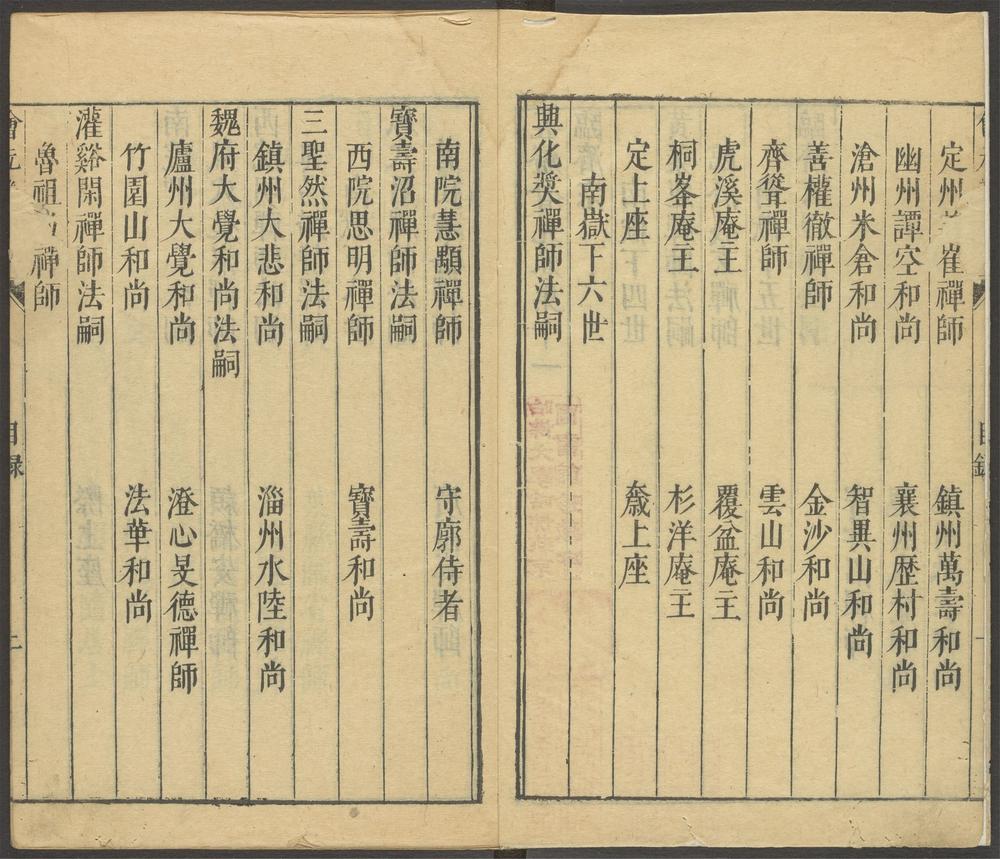 定州崔禪師　鎮州萬壽和尚
幽州譚空和尚　襄州歷村和尚
滄州米倉和尚　智異山和尚
善權徹禪師　金沙和尚
齊聳禪師　雲山和尚
虎溪庵主　覆盆庵主
桐峯庵主　杉洋庵主
定上座　奯上座
南嶽下六世
興化奬禪師法嗣
南院慧顒禪師　守廓侍者
寶壽沼禪師法嗣
西院思明禪師　寶壽和尚
三聖然禪師法嗣
鎮州大悲和尚　淄州水陸和尚
魏府大覺和尚法嗣
廬州大覺和尚　澄心旻德禪師
竹園山和尚　法華和尚
灌谿閑禪師法嗣
魯祖禪師
會元　目錄　二